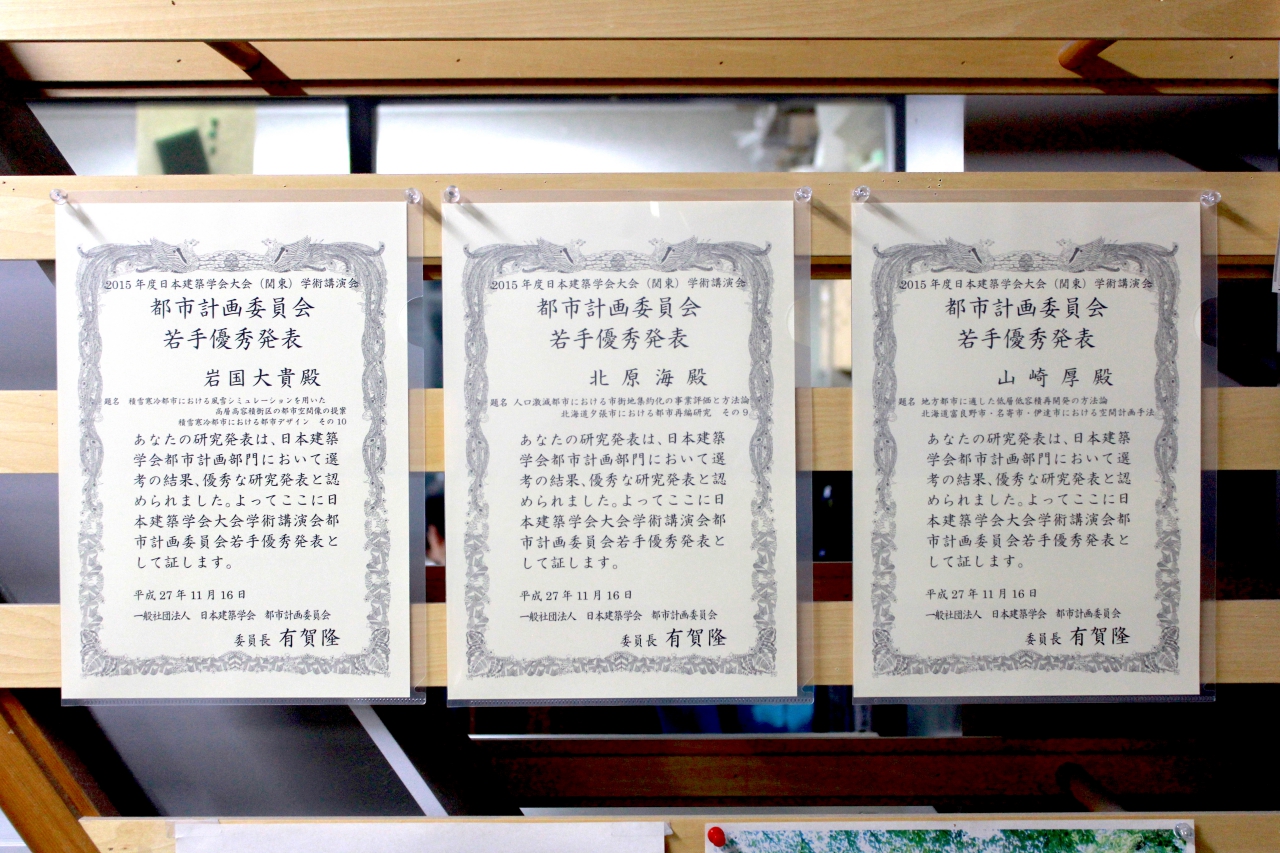 2015年度日本建築学会大会（関東）学術講演会
都市計画委員会
若手優秀発表
岩国大貴殿
題名 積雪寒冷都市における風雪シミュレーションを用いた
高層高容積街区の都市空間像の提案
積雪寒冷都市における都市デザイン その10
あなたの研究発表は、日本建築
学会都市計画部門において選
考の結果、優秀な研究発表と認
められました。よってここに日
本建築学会大会学術講演会都
市計画委員会若手優秀発表と
して証します。
平成27年11月16日
一般社団法人 日本建築学会 都市計画委員会
委員長 有賀隆
2015年度日本建築学会大会（関東）学術講演会
都市計画委員会
若手優秀発表
北原海殿
題名 人口激減都市における市街地集約化の事業評価と方法論
北海道夕張市における都市再編研究 その9
あなたの研究発表は、日本建築
学会都市計画部門において選
考の結果、優秀な研究発表と認
められました。よってここに日
本建築学会大会学術講演会都
市計画委員会若手優秀発表と
して証します。
平成27年11月16日
一般社団法人 日本建築学会 都市計画委員会
委員長 有賀隆
2015年度日本建築学会大会（関東）学術講演会
都市計画委員会
若手優秀発表
山崎厚殿
題名 地方都市に適した低層低容積再開発の方法論
北海道富良野市・名寄市・伊達市における空間計画手法
あなたの研究発表は、日本建築
学会都市計画部門において選
考の結果、優秀な研究発表と認
められました。よってここに日
本建築学会大会学術講演会都
市計画委員会若手優秀発表と
して証します。
平成27年11月16日
一般社団法人 日本建築学会 都市計画委員会
委員長 有賀隆